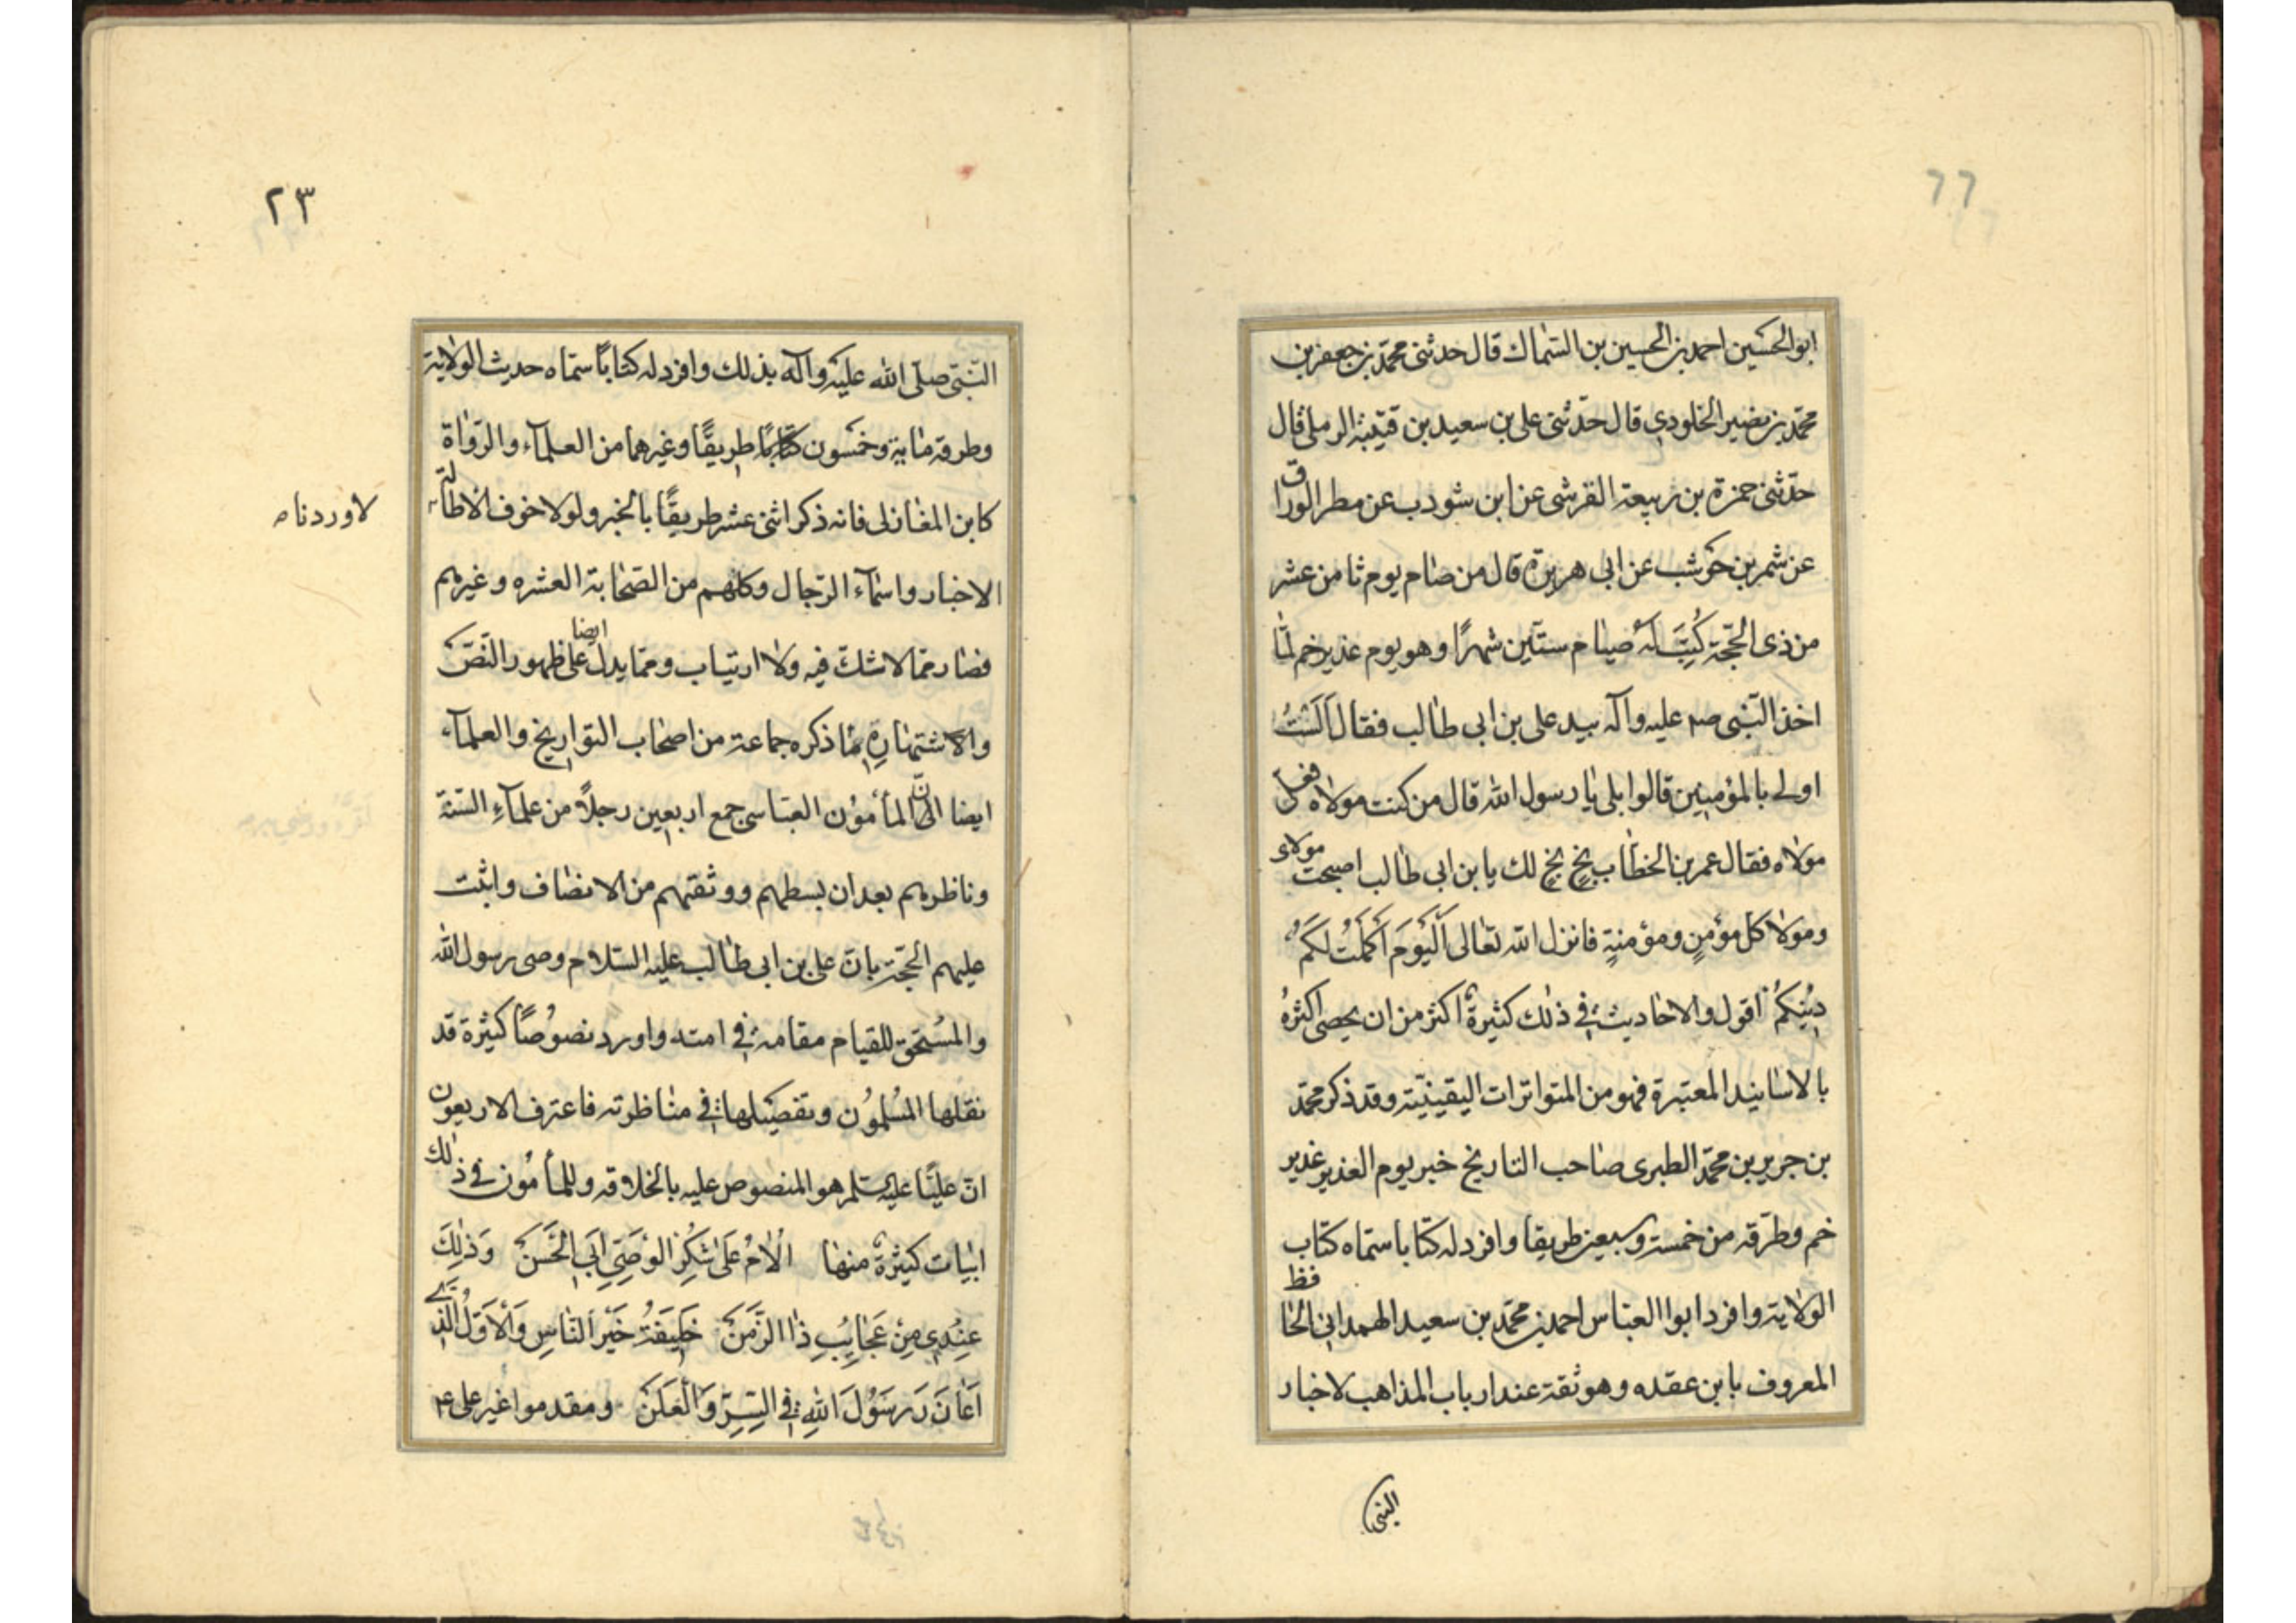 ٦٦
ابوالحسين احمد بن الحسين بن السّماك قال حدثنى محمّد بن جعفر بن
محمّد بن نضير الخلودى قال حدّثنى على بن سعيد بن قتيبة الرملى قال
حدّثنى حمزة بن ربيعة القرشى عن ابن شودب عن مطر الورّاق
عن شمر بن حوشب عن ابى هريرة قال من صام يوم ثامن عشر
من ذى الحجّة كُتِبَ لَهُ صيام ستّين شهرًا وهو يوم غدير خم لمّا
اخذ النّبى صم عليه وآله بيد على بن ابى طالب فقال اَلَسْتُ
اولى بالمؤمنين قالوا بلى يا رسول الله قال من كنت مولاه فعلى
مولاه فقال عمر بن الخطّاب بخ بخ لك يا بن ابى طالب اصبحت مولاى
ومولا كل مؤمنٍ ومؤمنةٍ فانزل الله تعالى اَلْيَوْمَ اَكْمَلْتُ لَكُمْ
دِيْنِكُمْ اقول والاحاديث فى ذلك كثيرة اكثر من ان يحصى اكثرهُ
بالاسانيد المعتبرة فهو من المتواترات اليقينيّة وقد ذكر محمّد
بن جرير بن محمّد الطبرى صاحب التاريخ خبر يوم الغدير غدير
خم وطرّقه من خمسة وسبعين طريقا وافرد له كتابا سمّاه كتاب
الولاية وافرد ابوا العباس احمد بن محمّد بن سعيد الهمدانى الحافظ
المعروف بابن عقده وهو ثقة عند ارباب المذاهب لاخبار
النبى
٢٣
النّبىّ صلّى الله عليه وآله بذلك وافرد له كتاباً سمّاه حديث الولاية
وطرقه مأية وخمسون كتابًا طريقًا وغيرهما من العلمآء والرّواة
كابن المغازلى فانه ذكر اثنى عشر طريقًا بالخبر ولولا خوف الاطالة
لاوردنا
الاخبار واسماء الرّجال وكلهم من الصّحابة العشره وغيرهم
فصار ممّا لا شكّ فيه ولا ارتياب وممّا يدلّ ايضا على ظهور النّصّ
والاشتهارِهِ مٰا ذكره جماعة من اصحاب التواريخ والعلمآء
ايضا انّ المأمون العبّاسى جمع اربعين رجلاً من علمآءِ السّنة
وناظرهم بعد ان بسطهم ووثقهم من الانصاف واثبت
عليهم الحجّة بانّ على بن ابى طالب عليه السّلام وصى رسول الله
والمُستحق للقيام مقامه فى امته واورد نصوصًا كثيرة قد
نقلها المُسْلمُوْن وتفصيلها فى مناظرته فاعترف الاربعون
انّ عليًّا عليه السلم هو المنصوص عليه بالخلافه وللمأمون فى ذلك
ابيات كثيرة منها اُلاٰمُ عَلىٰ شُكْرِ الوَصِىِّ اَبِى الحَسَنْ وَذٰلِكَ
عِنْدِى مِنْ عَجَايِبِ ذَا الزَّمَنْ خَلِيفَةُ خَيْرِ النَّاسِ وَالْاَوَّلُ الَّذِى
اَعٰانَ رَسُوْلَ اللهِ فِى السِّرِّ وَالْعَلَنْ ومقدموا غير على ع